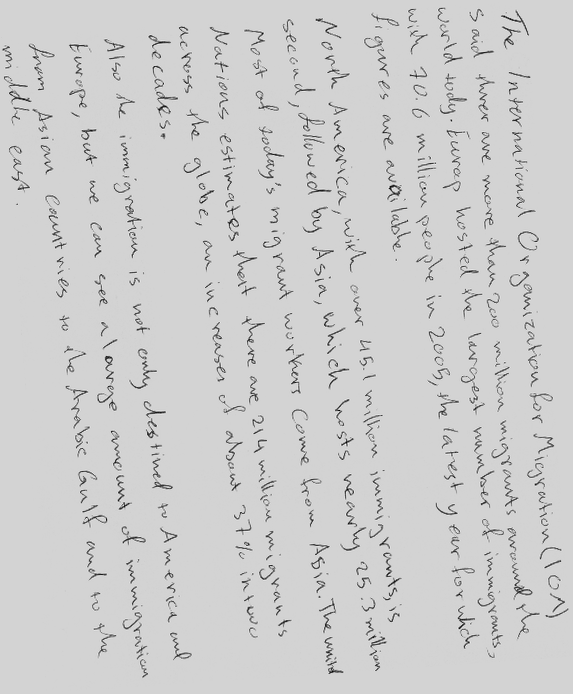 The International Organization for Migration (IOM)
said threr are more than 200 million migrants around the
world tody. Europ hosted the largest number of immigrants,
with 70.6 million people in 2005, the latest year for which
figures are available.
North America, with over 45.1 million immigrants, is
second, followed by Asia, which hosts nearly 25.3 million
Most of today's migrant workers come from Asia. The unitd
Nations estimates thert there are 214 million migrants
across the globe, an increases of about 37% in two
decades.
Also the immigration is not only destined to America and
Europe, but we can see a large amount of immigration
from Asian countries to the Arabic Gulf and to the
middle east.